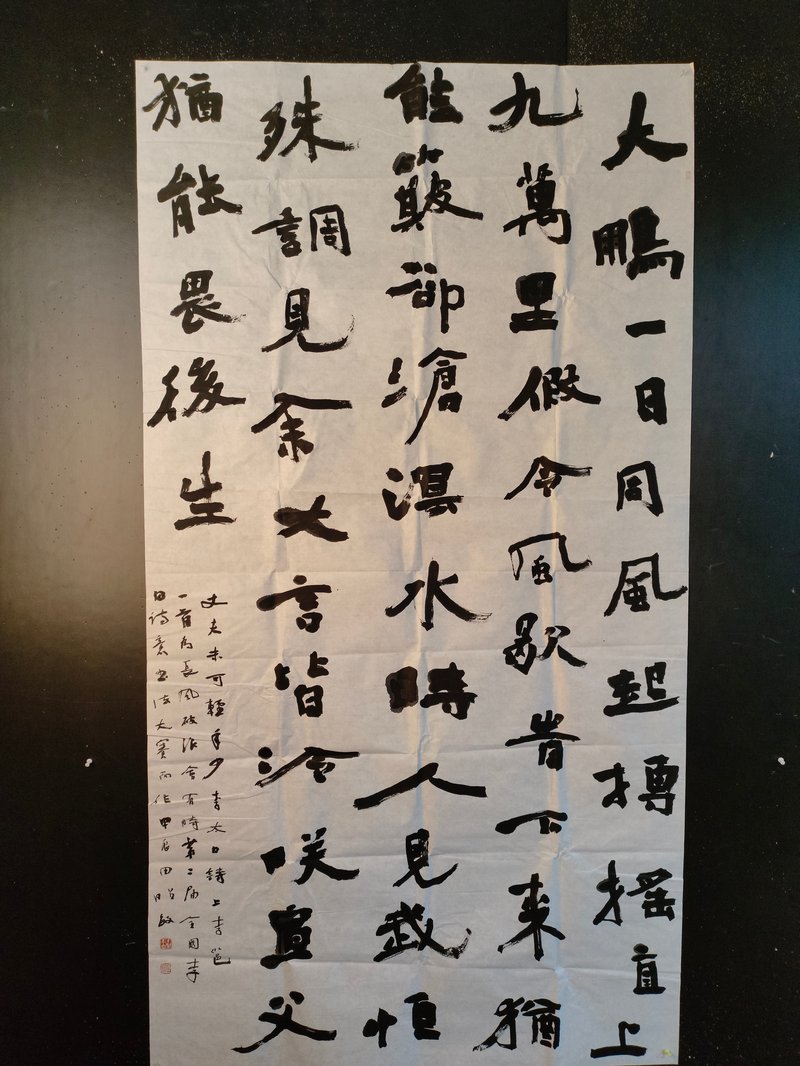 大鵬一日同風起搏摇直上
九萬里假令風歇旹下来猶
能簸卻滄溟水時人見我恒
殊調見余大言皆冷咲宣父
猶能畏後生
丈夫未可輕年少李太白詩上李邕
一首為長風破浪會有時第二届全國李
白詩意書法大賽而作甲辰田昭敏